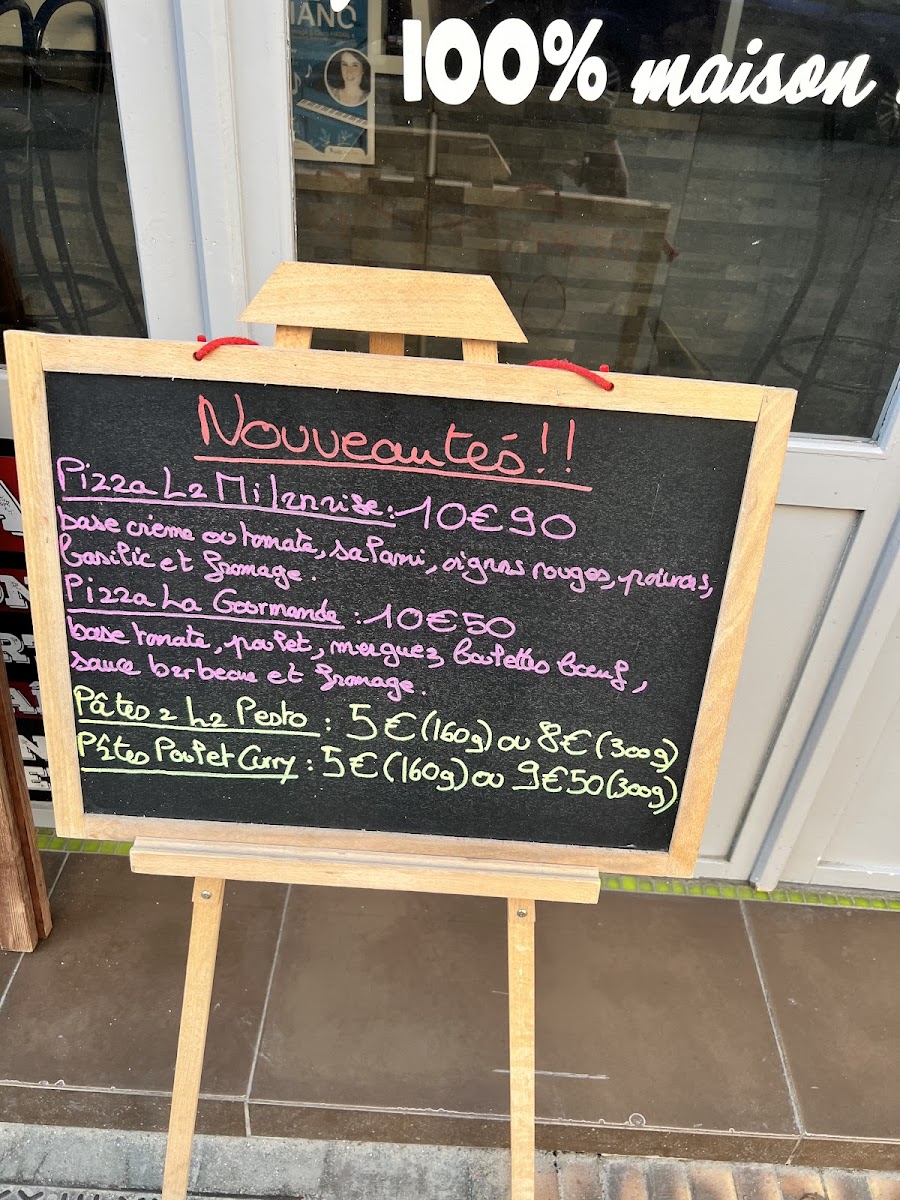 IANO
100% maison
Nouveautés!!
Pizza La Milanaise : 10€90
base crème ou tomate, salami, oignons rouges, poivrons,
basilic et fromage.
Pizza La Gourmande : 10€50
base tomate, poulet, merguez, boulettes bœuf,
sauce barbecue et fromage.
Pâtes à La Pesto : 5€ (160g) ou 8€ (300g)
Pâtes Poulet Curry : 5€ (160g) ou 9€50 (300g)